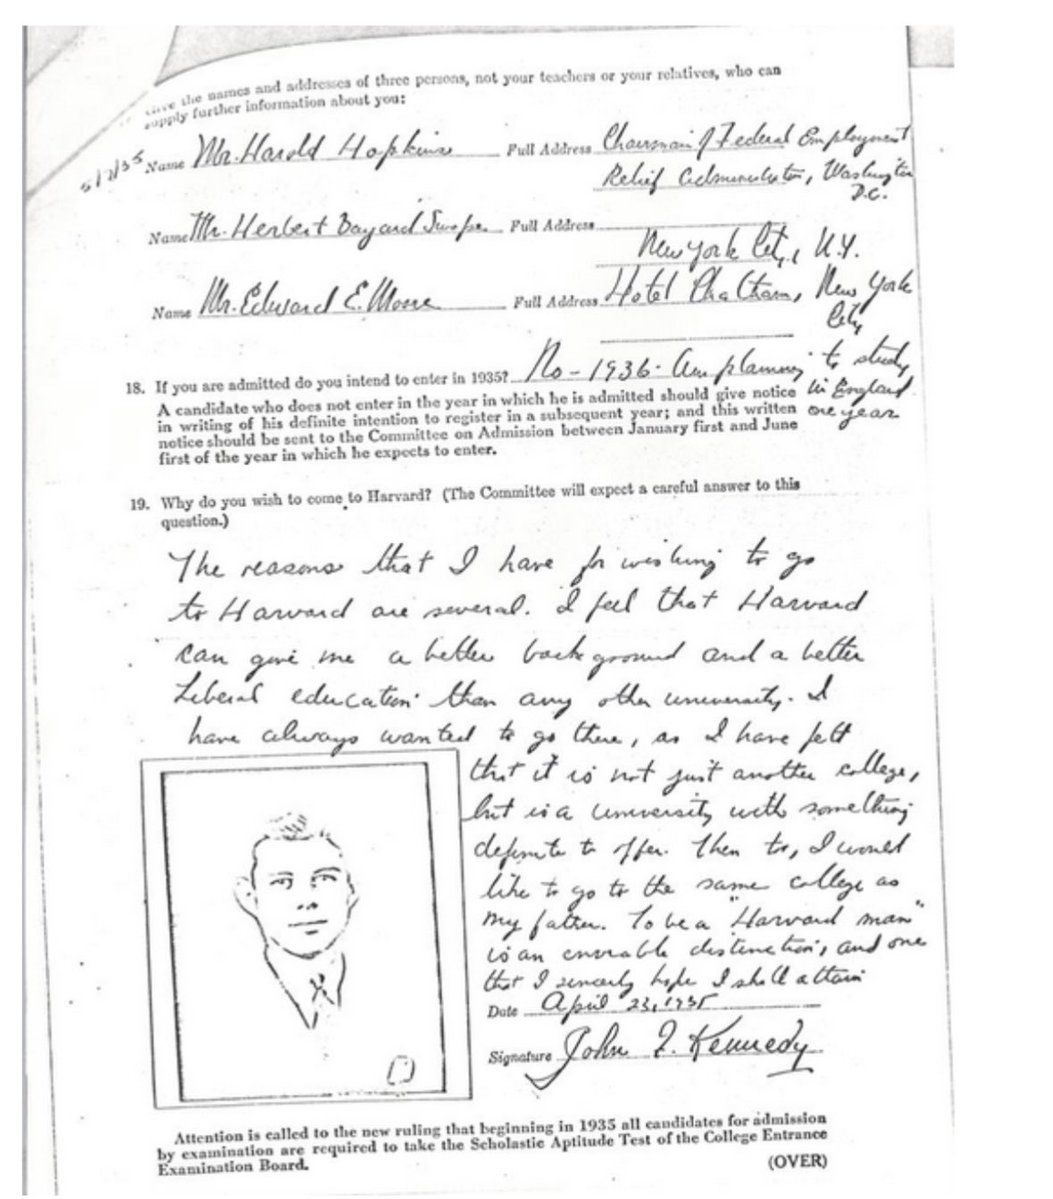 Give the names and addresses of three persons, not your teachers or your relatives, who can
supply further information about you:
5/7/35
Name Mr. Harold Hopkins Full Address Chairman of Federal Employment
Relief Administration, Washington
D.C.
Name Mr. Herbert Bayard Swope Full Address
New York City, N.Y.
Name Mr. Edward E. Moore Full Address Hotel Chatham, New York
City
18. If you are admitted do you intend to enter in 1935? No - 1936. Am planning to study
in England
one year
A candidate who does not enter in the year in which he is admitted should give notice
in writing of his definite intention to register in a subsequent year; and this written
notice should be sent to the Committee on Admission between January first and June
first of the year in which he expects to enter.
19. Why do you wish to come to Harvard? (The Committee will expect a careful answer to this
question.)
The reasons that I have for wishing to go
to Harvard are several. I feel that Harvard
can give me a better background and a better
liberal education than any other university. I
have always wanted to go there, as I have felt
that it is not just another college,
but is a university with something
definite to offer. Then to, I would
like to go to the same college as
my father. To be a "Harvard man"
is an enviable distinction, and one
that I sincerely hope I shall attain
Date April 23, 1935
Signature John F. Kennedy
Attention is called to the new ruling that beginning in 1935 all candidates for admission
by examination are required to take the Scholastic Aptitude Test of the College Entrance
Examination Board.
(OVER)